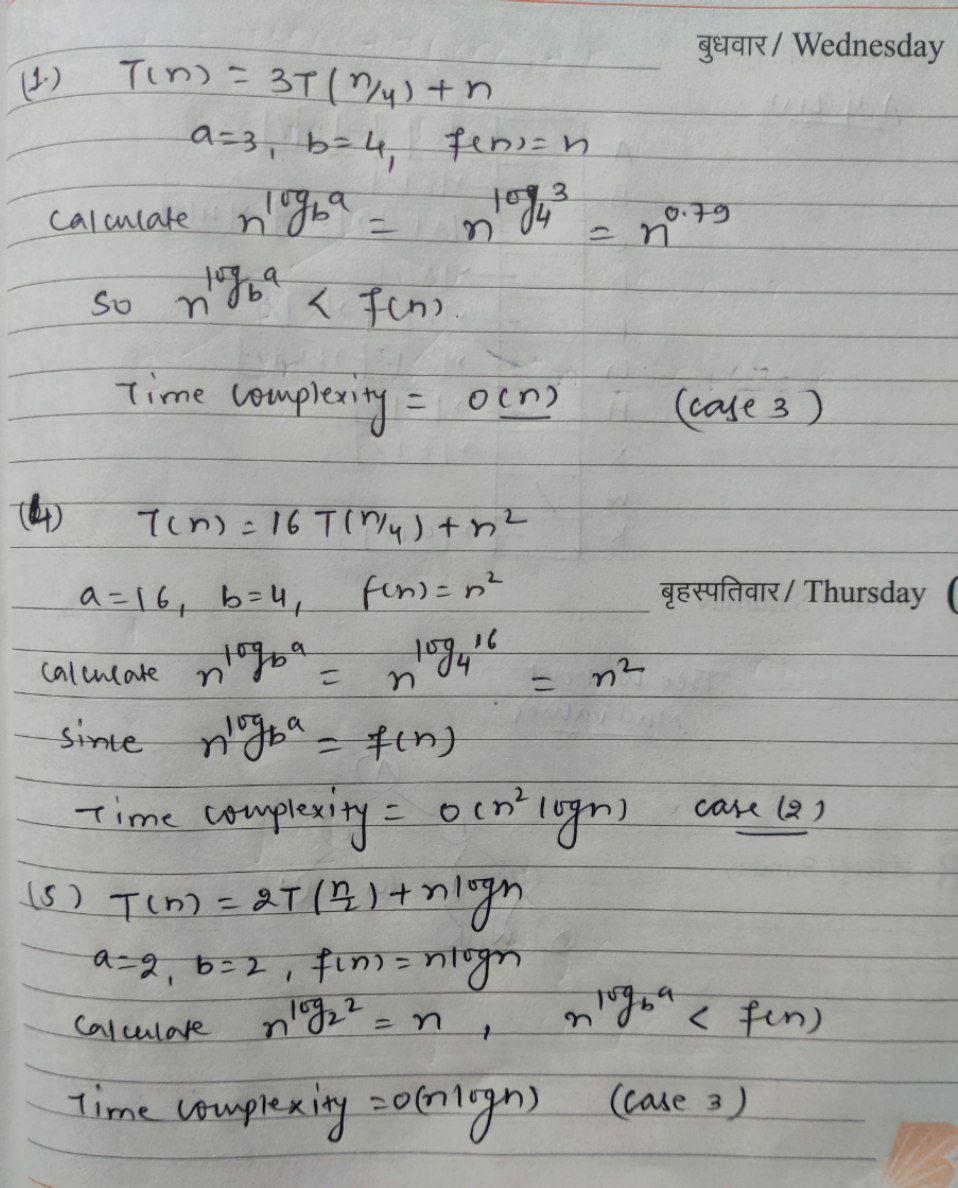 बुधवार / Wednesday
(1.) T(n) = 3T(n/4) + n
a=3, b=4, f(n)=n
Calculate n^log_b a = n^log_4 3 = n^0.79
So n^log_b a < f(n).
Time complexity = O(n) (case 3)
(4) T(n) = 16 T(n/4) + n²
a=16, b=4, f(n)=n²
बृहस्पतिवार / Thursday (
Calculate n^log_b a = n^log_4 16 = n²
Since n^log_b a = f(n)
Time complexity = O(n² logn) case (2)
(5) T(n) = 2T(n/2) + nlogn
a=2, b=2, f(n)=nlogn
Calculate n^log_2 2 = n, n^log_b a < f(n)
Time complexity = O(nlogn) (case 3)